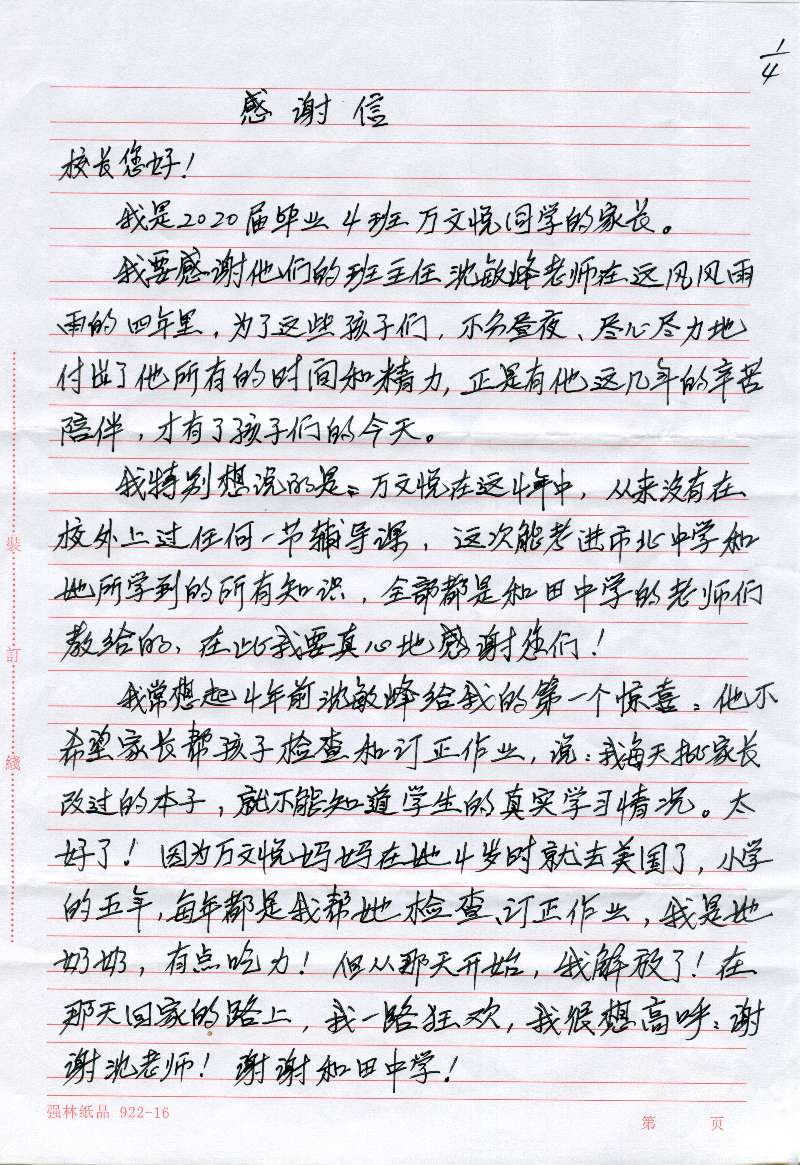 1/4
感谢信
校长您好！
我是2020届毕业4班万文悦同学的家长。
我要感谢他们的班主任沈敏峰老师在这风风雨
雨的四年里，为了这些孩子们，不分昼夜、尽心尽力地
付出了他所有的时间和精力，正是有他这几年的辛苦
陪伴，才有了孩子们的今天。
我特别想说的是：万文悦在这4年中，从来没有在
校外上过任何一节辅导课，这次能考进市北中学和
她所学到的所有知识，全部都是和田中学的老师们
教给的，在此我要真心地感谢您们！
我常想起4年前沈敏峰给我的第一个惊喜：他不
希望家长帮孩子检查和订正作业，说：我每天批家长
改过的本子，就不能知道学生的真实学习情况。太
好了！因为万文悦妈妈在她4岁时就去美国了，小学
的五年，每年都是我帮她检查、订正作业，我是她
奶奶，有点吃力！但从那天开始，我解放了！在
那天回家的路上，我一路狂欢，我很想高呼：谢
谢沈老师！谢谢和田中学！
装
訂
綫
强林纸品 922-16
第 页